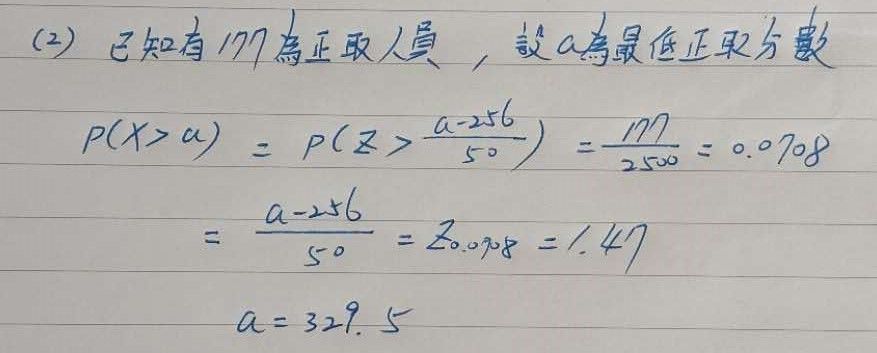 (2) 已知有177為正取人員，設a為最低正取分數
P(X>a) = P(Z > \frac{a-256}{50}) = \frac{177}{2500} = 0.0708
= \frac{a-256}{50} = Z_{0.0708} = 1.47
a = 329.5